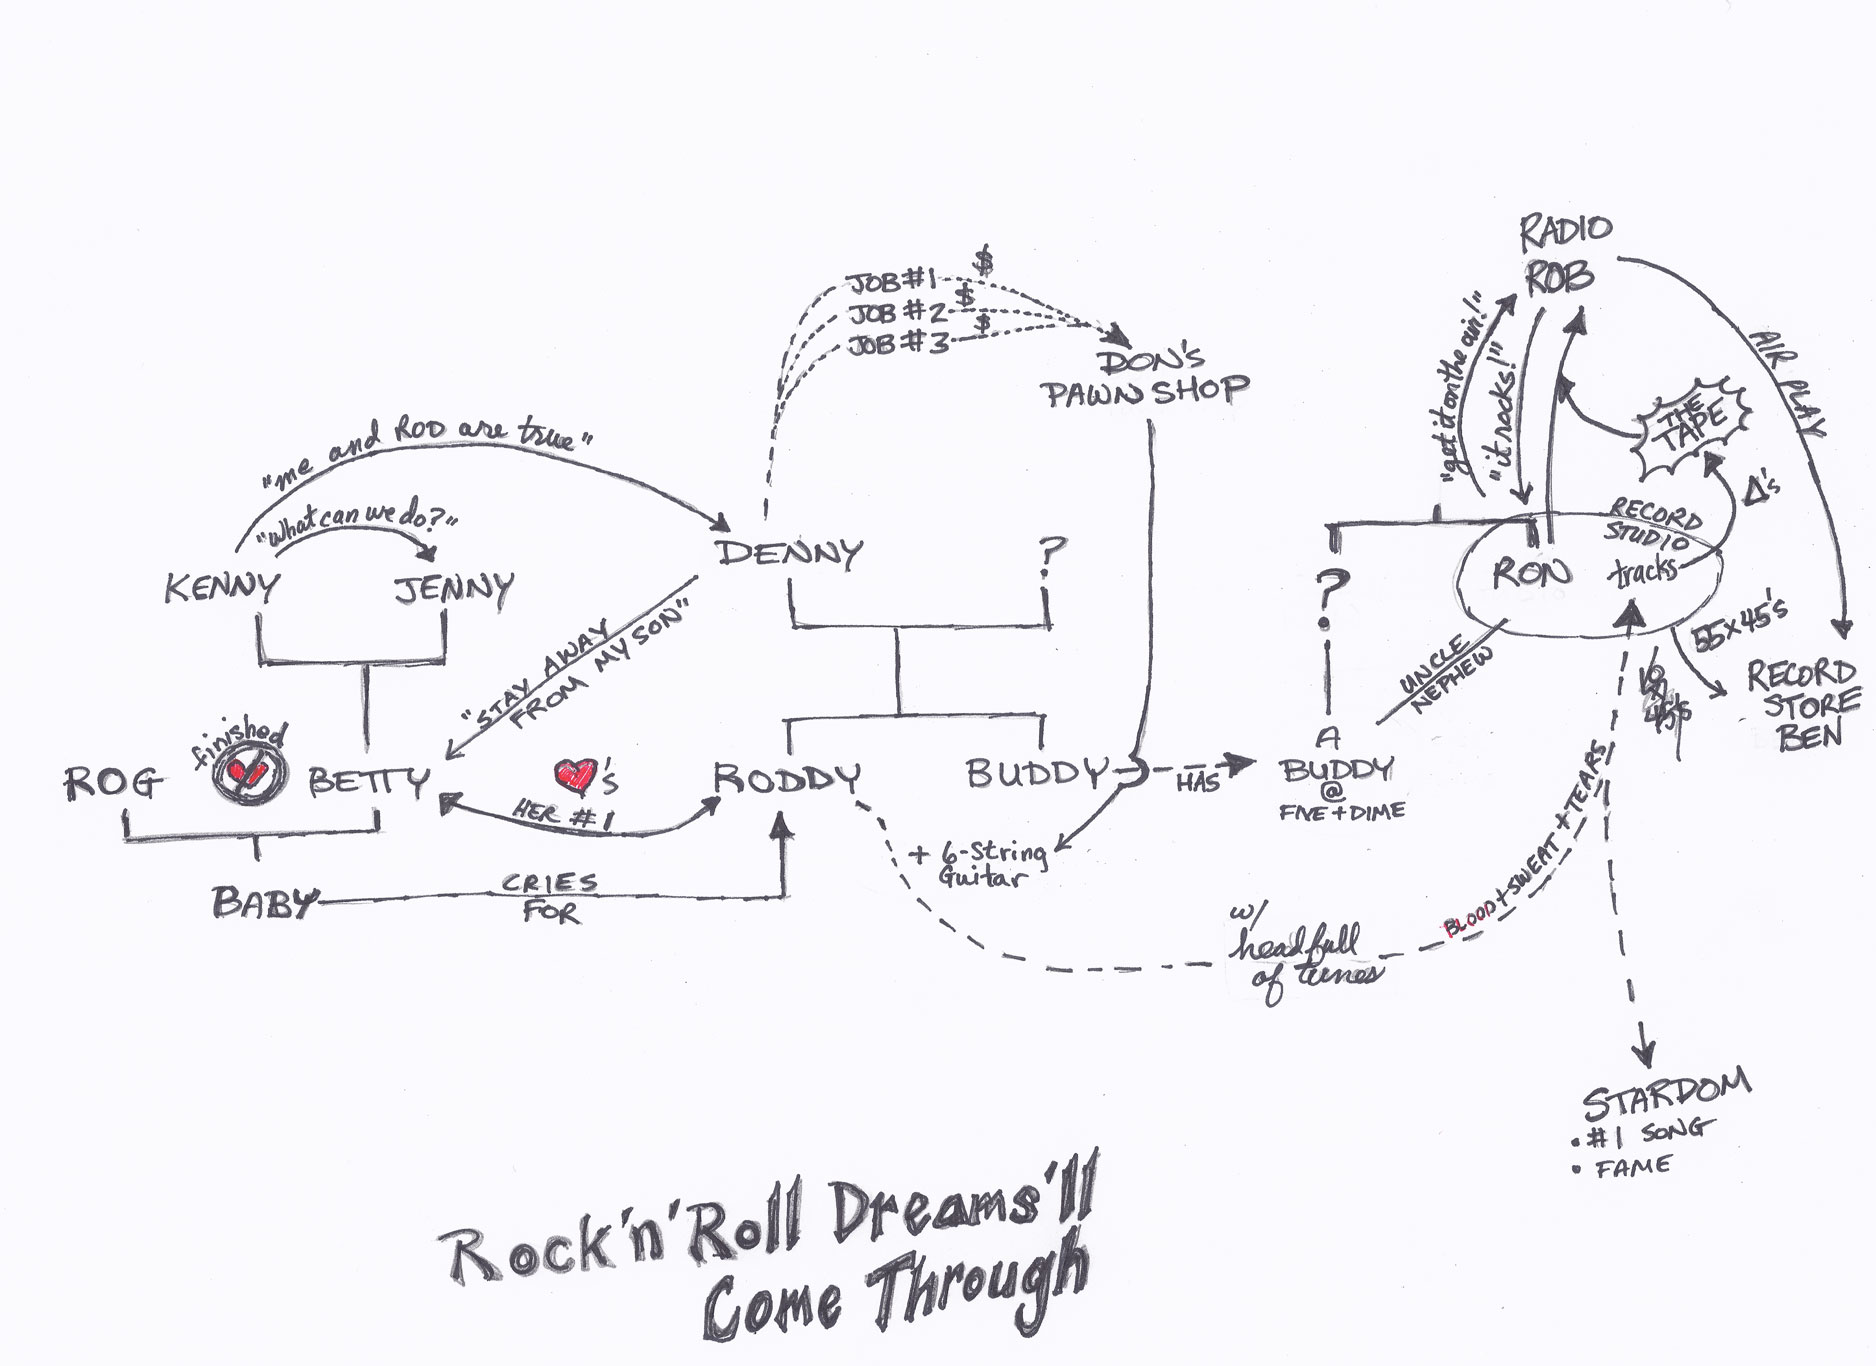 RADIO
ROB
JOB #1 $
JOB #2 $
JOB #3 $
DON'S
PAWN SHOP
"get it on the air!"
"it rocks!"
AIR PLAY
THE
TAPE
Δ's
"me and ROD are true"
"What can we do?"
KENNY
JENNY
DENNY
?
?
RECORD
STUDIO
RON
tracks
55x45's
"STAY AWAY
FROM MY SON"
UNCLE
NEPHEW
RECORD
STORE
BEN
finished
ROG
BETTY
♥'s
HER #1
RODDY
BUDDY
HAS
A
BUDDY
@
FIVE + DIME
+ 6-String
Guitar
BABY
CRIES
FOR
w/
headfull
of tunes
BLOOD + SWEAT + TEARS
STARDOM
• #1 SONG
• FAME
Rock'n'Roll Dreams'll
Come Through